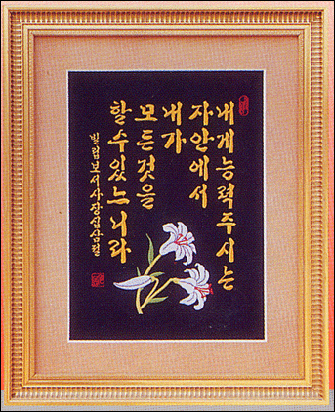 내게능력주시는
자안에서
내가
모든것을
할수있느니라
빌립보서사장십삼절